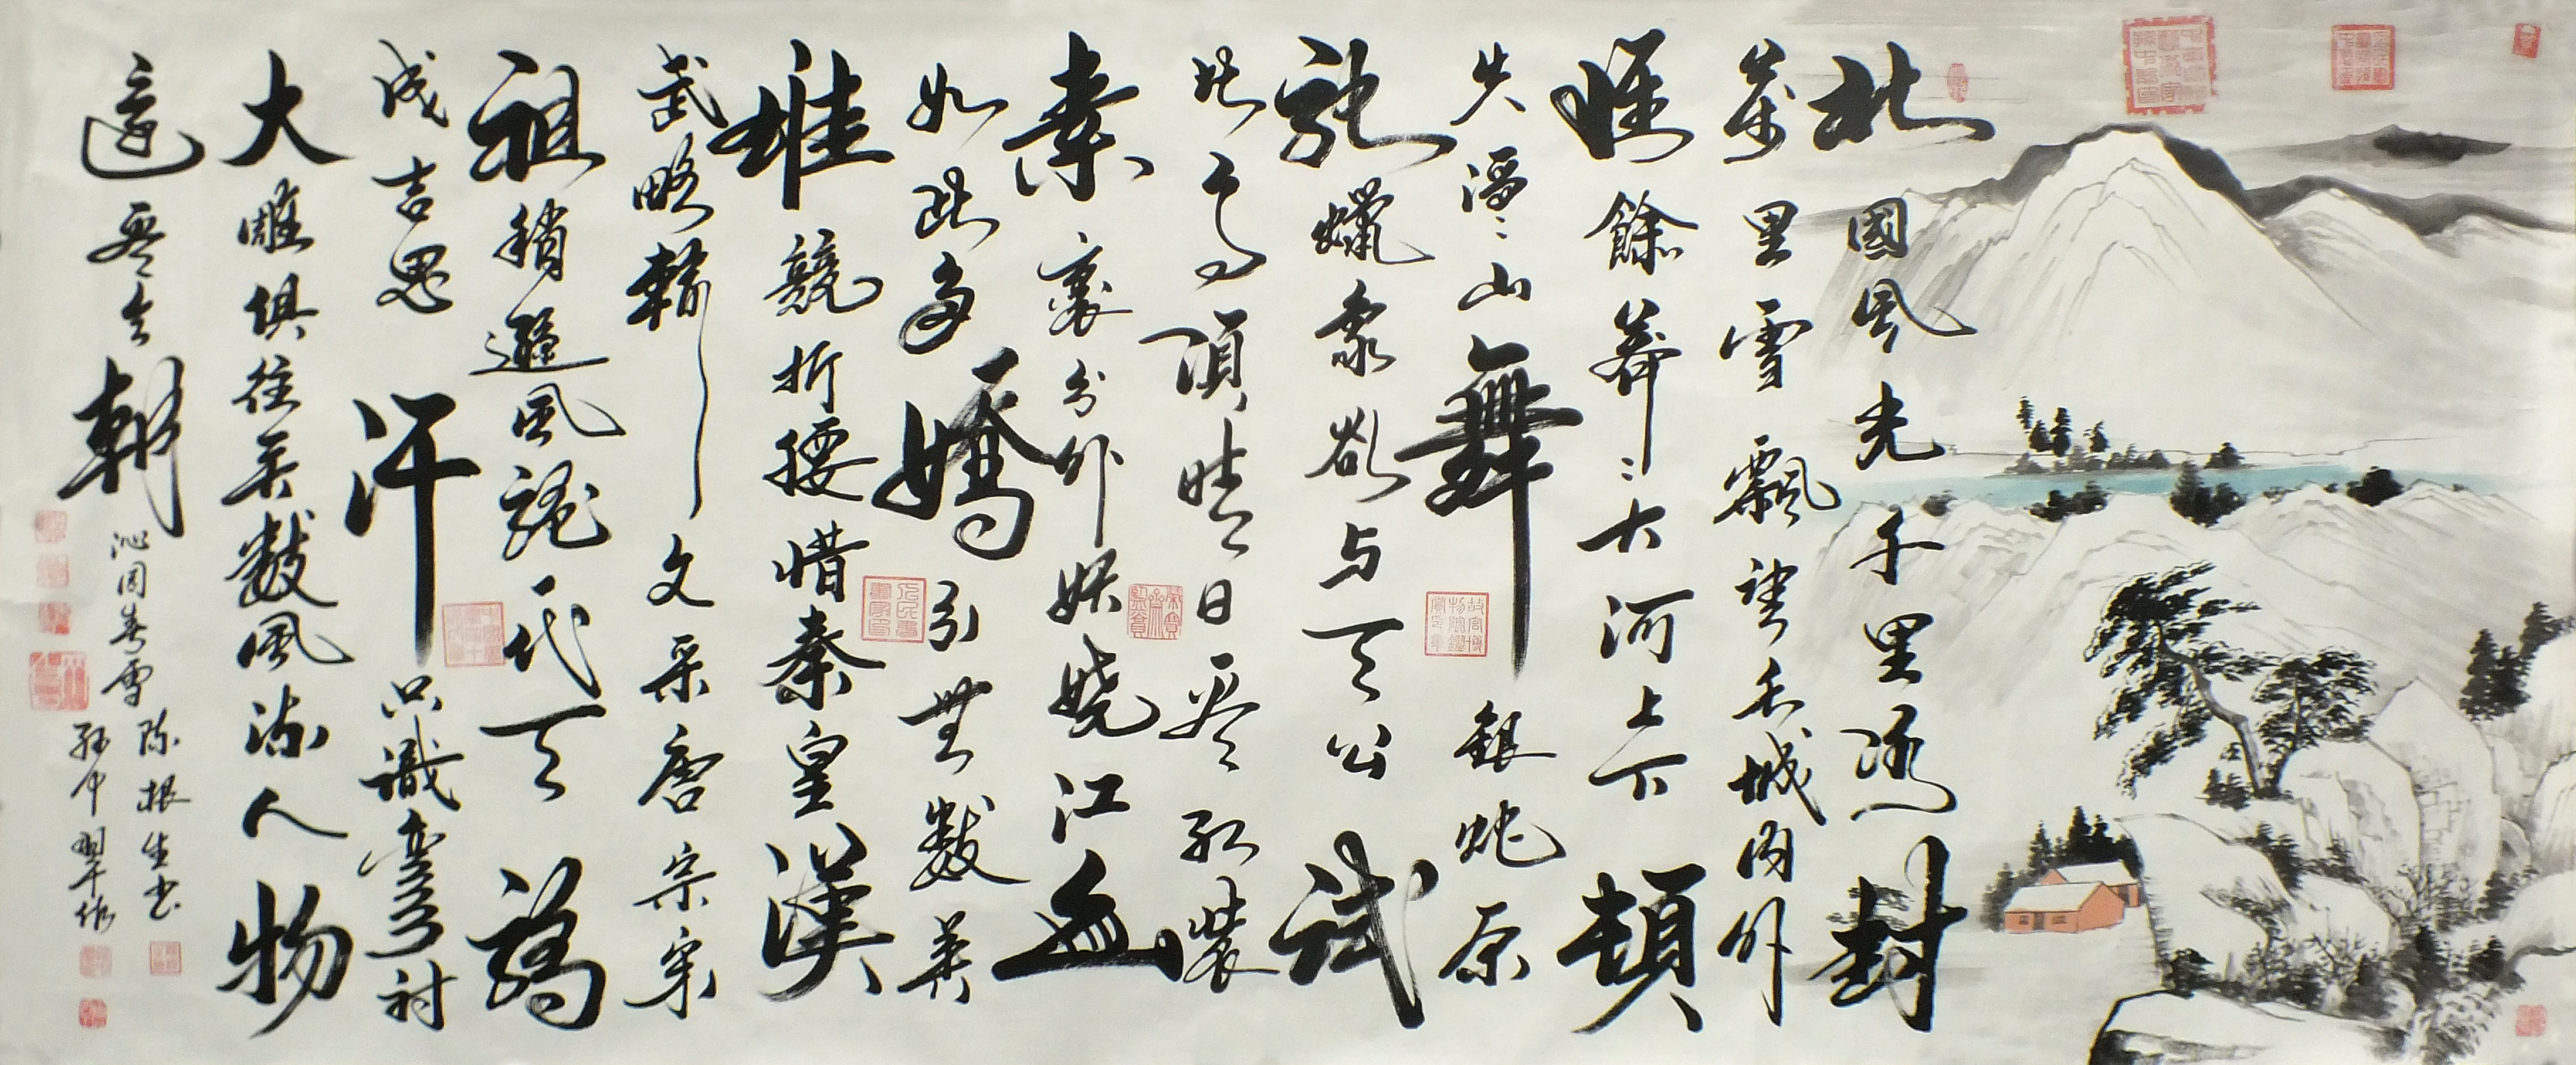 北國风光千里冰封
萬里雪飄望长城内外
惟餘莽々大河上下頓
失滔々山舞銀蛇原
馳蠟象欲与天公試
比高須晴日看红裝
素裹分外妖嬈江山
如此多嬌引無數英
雄競折腰惜秦皇漢
武略輸文采唐宗宋
祖稍遜風騷一代天驕
成吉思汗只識彎弓射
大雕俱往矣數風流人物
還看今朝
沁園春雪
陈根生书
孙中翠作